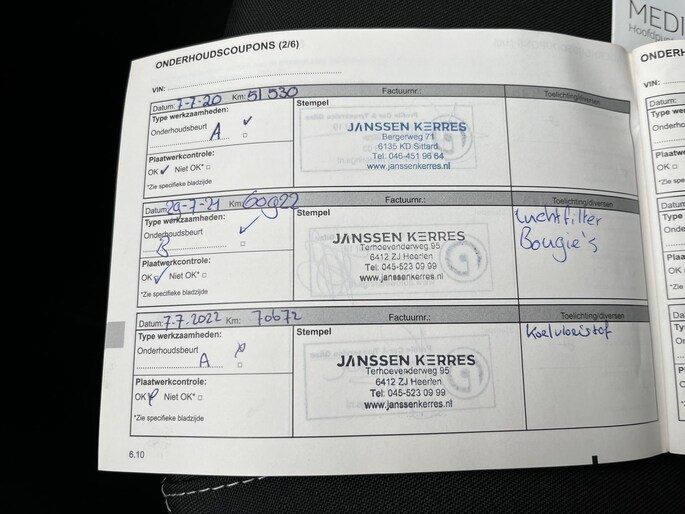 MEDI
Hoofdpu
ONDERHOUDSCOUPONS (2/6)
VIN:
Datum: 7-7-20 Km: 51 530 Factuurnr.:
Type werkzaamheden:
Onderhoudsbeurt
A
Plaatwerkcontrole:
OK Niet OK*
*Zie specifieke bladzijde
Stempel
JANSSEN KERRES
Bergerweg 71
6135 KD Sittard
Tel. 046-451 96 64
www.janssenkerres.nl
Toelichting/diversen
Datum: 29-7-21 Km: 60922 Factuurnr.:
Type werkzaamheden:
Onderhoudsbeurt
B
Plaatwerkcontrole:
OK Niet OK*
*Zie specifieke bladzijde
Stempel
JANSSEN KERRES
Terhoevenderweg 95
6412 ZJ Heerlen
Tel: 045-523 09 99
www.janssenkerres.nl
Toelichting/diversen
Luchtfilter
Bougie's
Datum: 7.7.2022 Km: 70672 Factuurnr.:
Type werkzaamheden:
Onderhoudsbeurt
A
Plaatwerkcontrole:
OK Niet OK*
*Zie specifieke bladzijde
Stempel
JANSSEN KERRES
Terhoevenderweg 95
6412 ZJ Heerlen
Tel: 045-523 09 99
www.janssenkerres.nl
Toelichting/diversen
Koelvloeistof
6.10
ONDERH
VIN:
Datum: